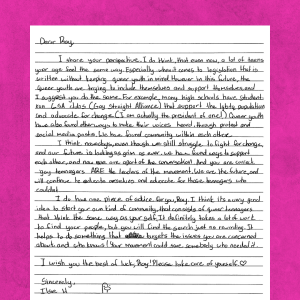 Dear Ray,
I share your perspective. I do think, that even now, a lot of teens
your age feel the same way. Especially when it comes to legislation that is
written without keeping queer youth in mind. However in this future, the
queer youth are trying to include themselves and support themselves, and
I suggest you do the same. For example, many high schools have student
run GSA clubs (Gay Straight Alliance) that support the lgbtq population
and advocate for change. (I am actually the president of one!) Queer youth
have also found other ways to make their voices heard, through protest and
social media posts. We have found community within each other.
I think nowadays, even though we still struggle to fight for change,
and our future is looking as grim as ever, we have found ways to support
each other, and now are apart of the conversation! And you are
gay teenagers ARE the leaders of the movement. We are the future, and
will continue to educate ourselves and advocate for those teenagers who
couldn't.
I do have one piece of advice for you, Ray. I think it's a very good
idea to start your own kind of community, that consists of queer teenagers
that think the same way as yourself. It definitely takes a lot of work
to find your people, but you will find the search just as rewarding. It
helps to do something that targets the issues you are concerned
about, and who knows! Your movement could save somebody who needed it.
I wish you the best of luck, Ray! Please take care of yourself ♡
Sincerely,